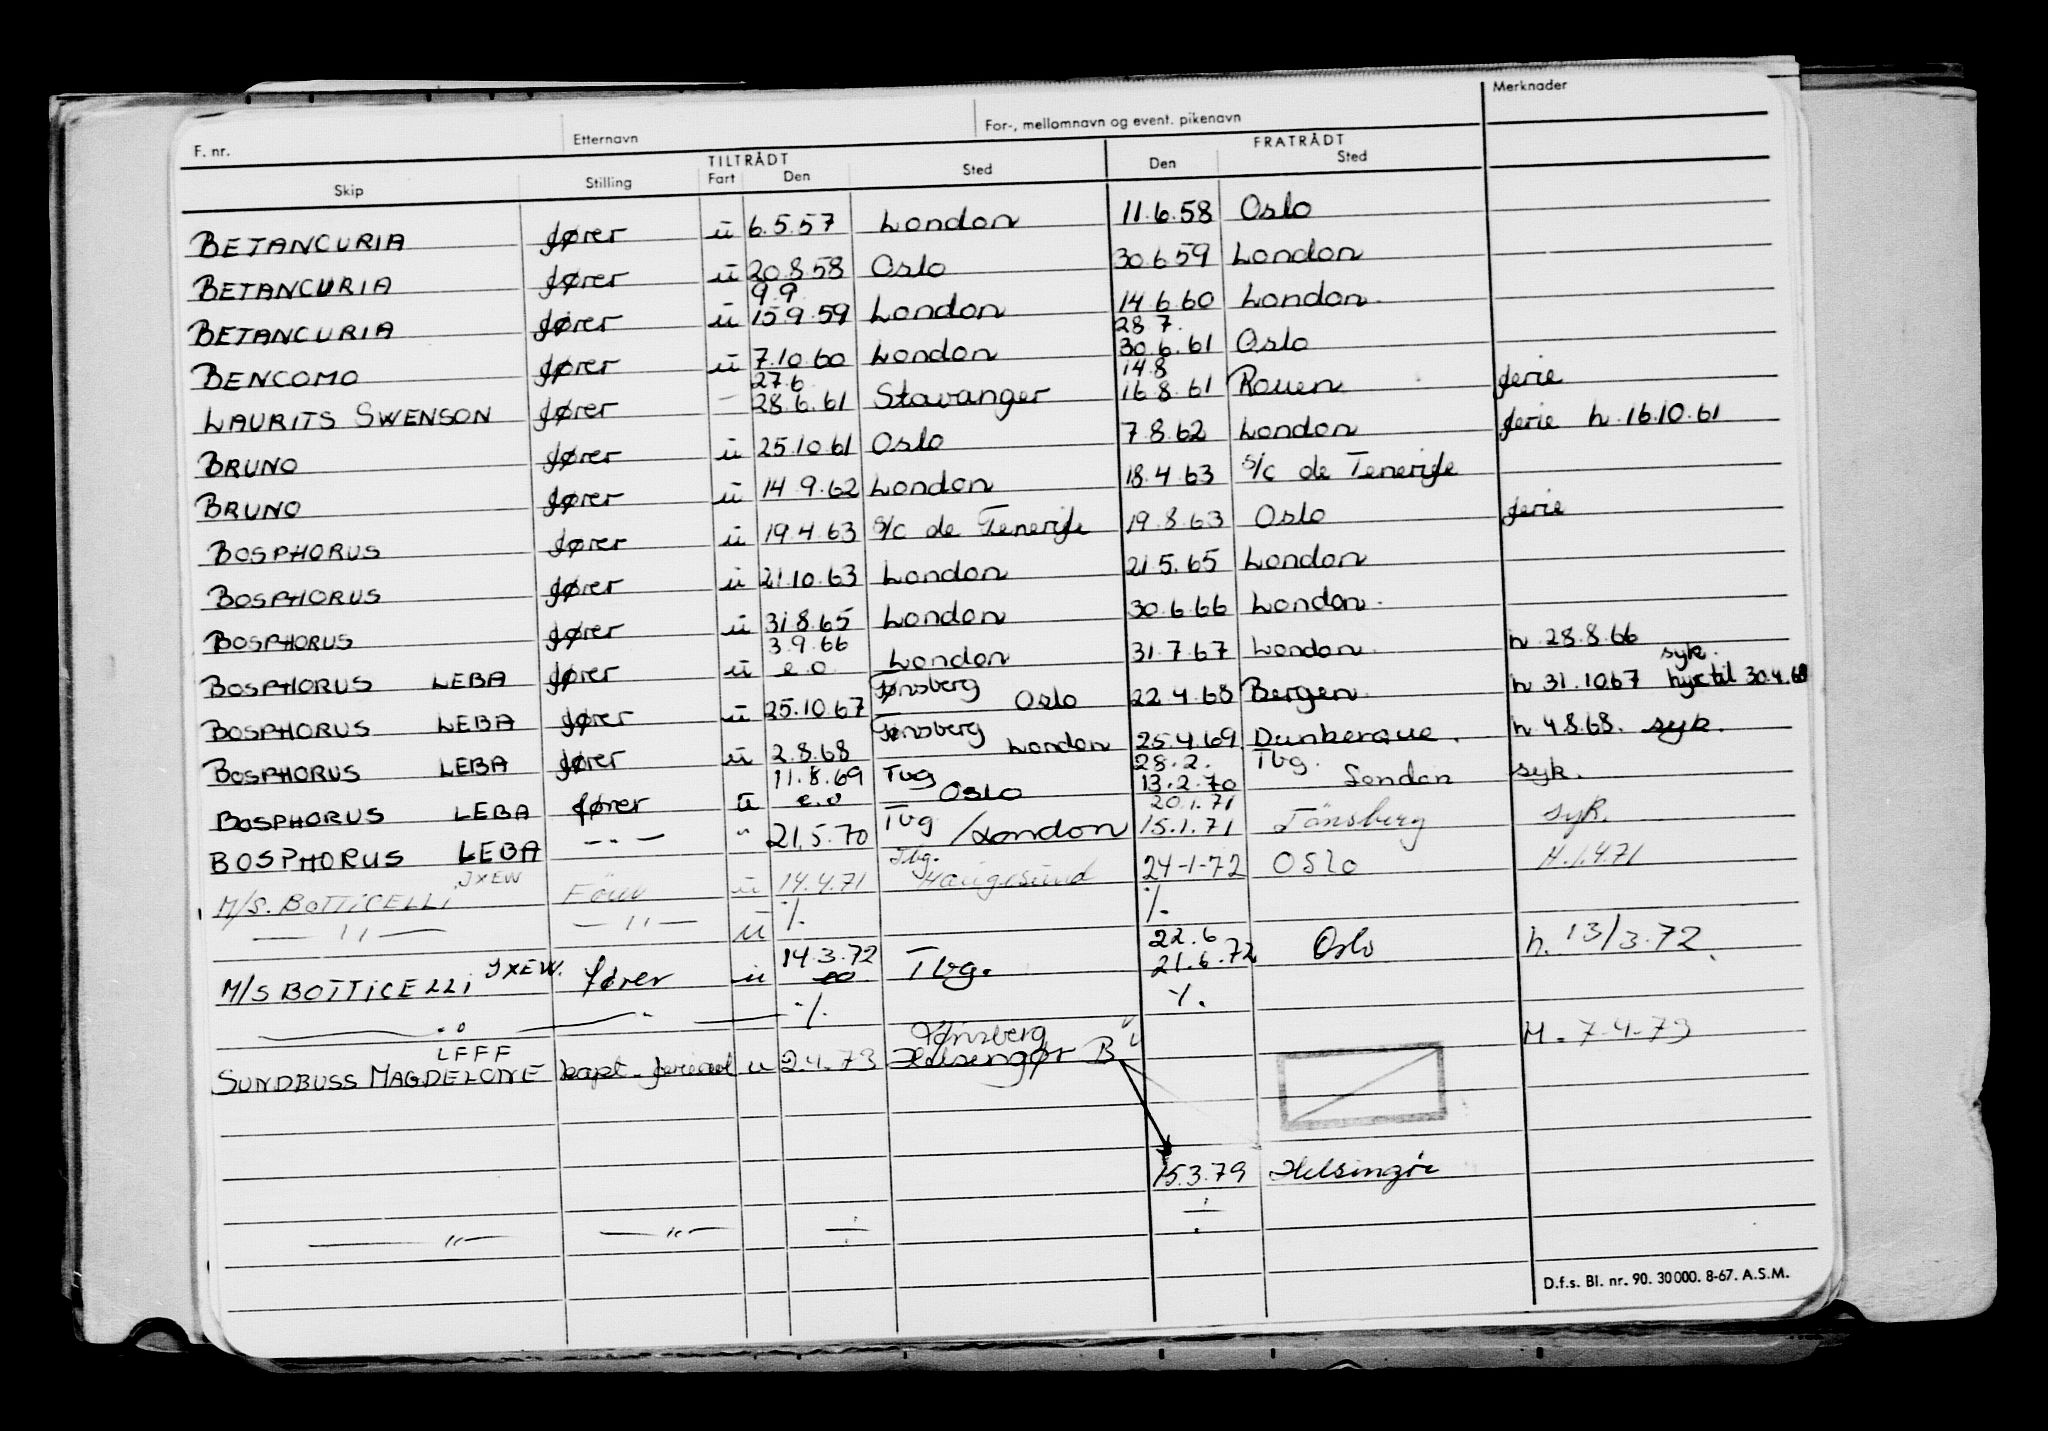 F. nr. Etternavn For-, mellomnavn og event. pikenavn Merknader
TILTRÅDT FRATRÅDT
Skip Stilling Fart Den Sted Den Sted
BETANCURIA fører u 6.5.57 London 11.6.58 Oslo
BETANCURIA fører u 20.8.58 Oslo 30.6.59 London
9.9
BETANCURIA fører u 15.9.59 London 14.6.60 London.
28.7.
BENCOMO fører u 7.10.60 London 30.6.61 Oslo
27.6 14.8
LAURITS SWENSON fører - 28.6.61 Stavanger 16.8.61 Rouen ferie
BRUNO fører u 25.10.61 Oslo 7.8.62 London ferie h. 16.10.61
BRUNO fører u 14.9.62 London 18.4.63 S/C de Tenerife
BOSPHORUS fører u 19.4.63 S/C de Tenerife 19.8.63 Oslo ferie
BOSPHORUS fører u 21.10.63 London 21.5.65 London
BOSPHORUS fører u 31.8.65 London 30.6.66 London.
3.9.66
BOSPHORUS LEBA fører u e.o. London 31.7.67 London. h 28.8.66
Tønsberg syk.
BOSPHORUS LEBA fører u 25.10.67 Oslo 22.4.68 Bergen h 31.10.67 hyre til 30.4.68
Tønsberg
BOSPHORUS LEBA fører u 2.8.68 London 25.4.69 Dunkerque. h 4.8.68. syk.
11.8.69 Tbg 28.2. Tbg.
BOSPHORUS LEBA fører u e.o Oslo 13.2.70 London syk.
Tbg 20.1.71
BOSPHORUS LEBA -"- " 21.5.70 /London 15.1.71 Tönsberg syk.
JXEW Tbg.
M/S. BOTTICELLI Förer u 14.4.71 Haugesund 24-1-72 OSLO H.1.4.71
-"- -"- u ⁒ ⁒
JXEW. 14.3.72 22.6
M/S BOTTICELLI fører u eo Tbg. 21.6.72 Oslo h. 13/3.72.
-"- -"- ⁒ ⁒
LFFF Tønsberg
SUNDBUSS MAGDELONE kapt. u 2.4.73 Helsingør B H. 7-4-73
15.3.79 Helsingör
-"- -"- ÷ ÷
D.f.s. Bl. nr. 90. 30 000. 8-67. A.S.M.